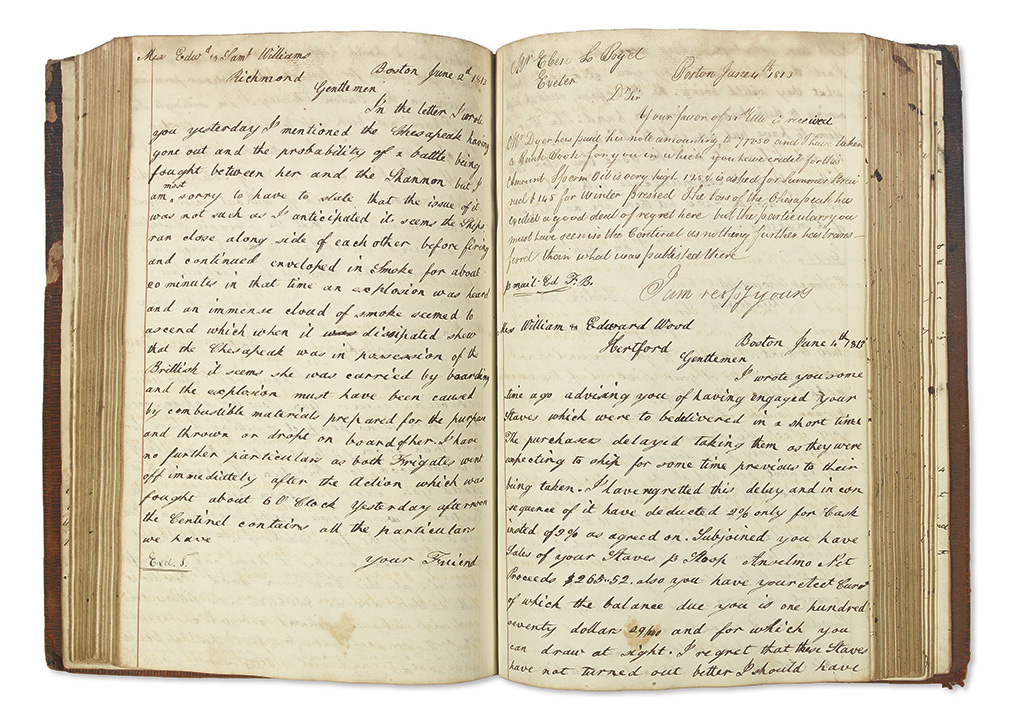 Mess Edwd & Saml Williams
Richmond
Boston June 2d 1813
Gentlemen
In the letter I wrote
you yesterday I mentioned the Chesapeak having
gone out and the probability of a battle being
fought between her and the Shannon but I
am most sorry to have to state that the issue of it
was not such as I anticipated it seems the Ships
ran close along side of each other before firing
and continued enveloped in Smoke for about
20 minutes in that time an explosion was heard
and an immense cloud of smoke seemed to
ascend which when it was dissipated shew
that the Chesapeak was in possession of the
Brittish it seems she was carried by boarding
and the explosion must have been caused
by combustible materials prepared for the purpose
and thrown or dropt on board of her. I have
no further particulars as both Frigates went
off immediately after the Action which was
fought about 6 O'Clock Yesterday afternoon
the Centinel contains all the particulars
we have
your Friend
Exd.
Mr Eben L Boyd
Exeter
Boston June 4th 1813
Dr Sir
Your favor of is received
Mr Dyer has paid his note amounting to and I have taken
a Bank Book for you in which you have credit for this
Amount Sperm Oil is very high 125 is asked for Summer Strai
ned & 145 for Winter pressed The loss of the Chesapeak has
excited a good deal of regret here but the particulars you
must have seen in the Centinel as nothing further has trans-
pired than what was published there
p mail - Ed F. B.
I am respy yours
Mess William & Edward Wood
Hertford
Boston June 4th 1813
Gentlemen
I wrote you some
time ago advising you of having engaged your
Staves which were to be delivered in a short time
The purchases delayed taking them as they were
expecting to ship for some time previous to their
being taken. I have regretted this delay and in con
sequence of it have deducted 2% only for Cask
insted of as agreed on. Subjoined you have
Sales of your Staves p Sloop Anselmo Net
Proceeds $265-52. also you have your Acct Curr
of which the balance due you is one hundred
seventy dollars 29/100 and for which you
can draw at sight. I regret that these Staves
have not turned out better I should have